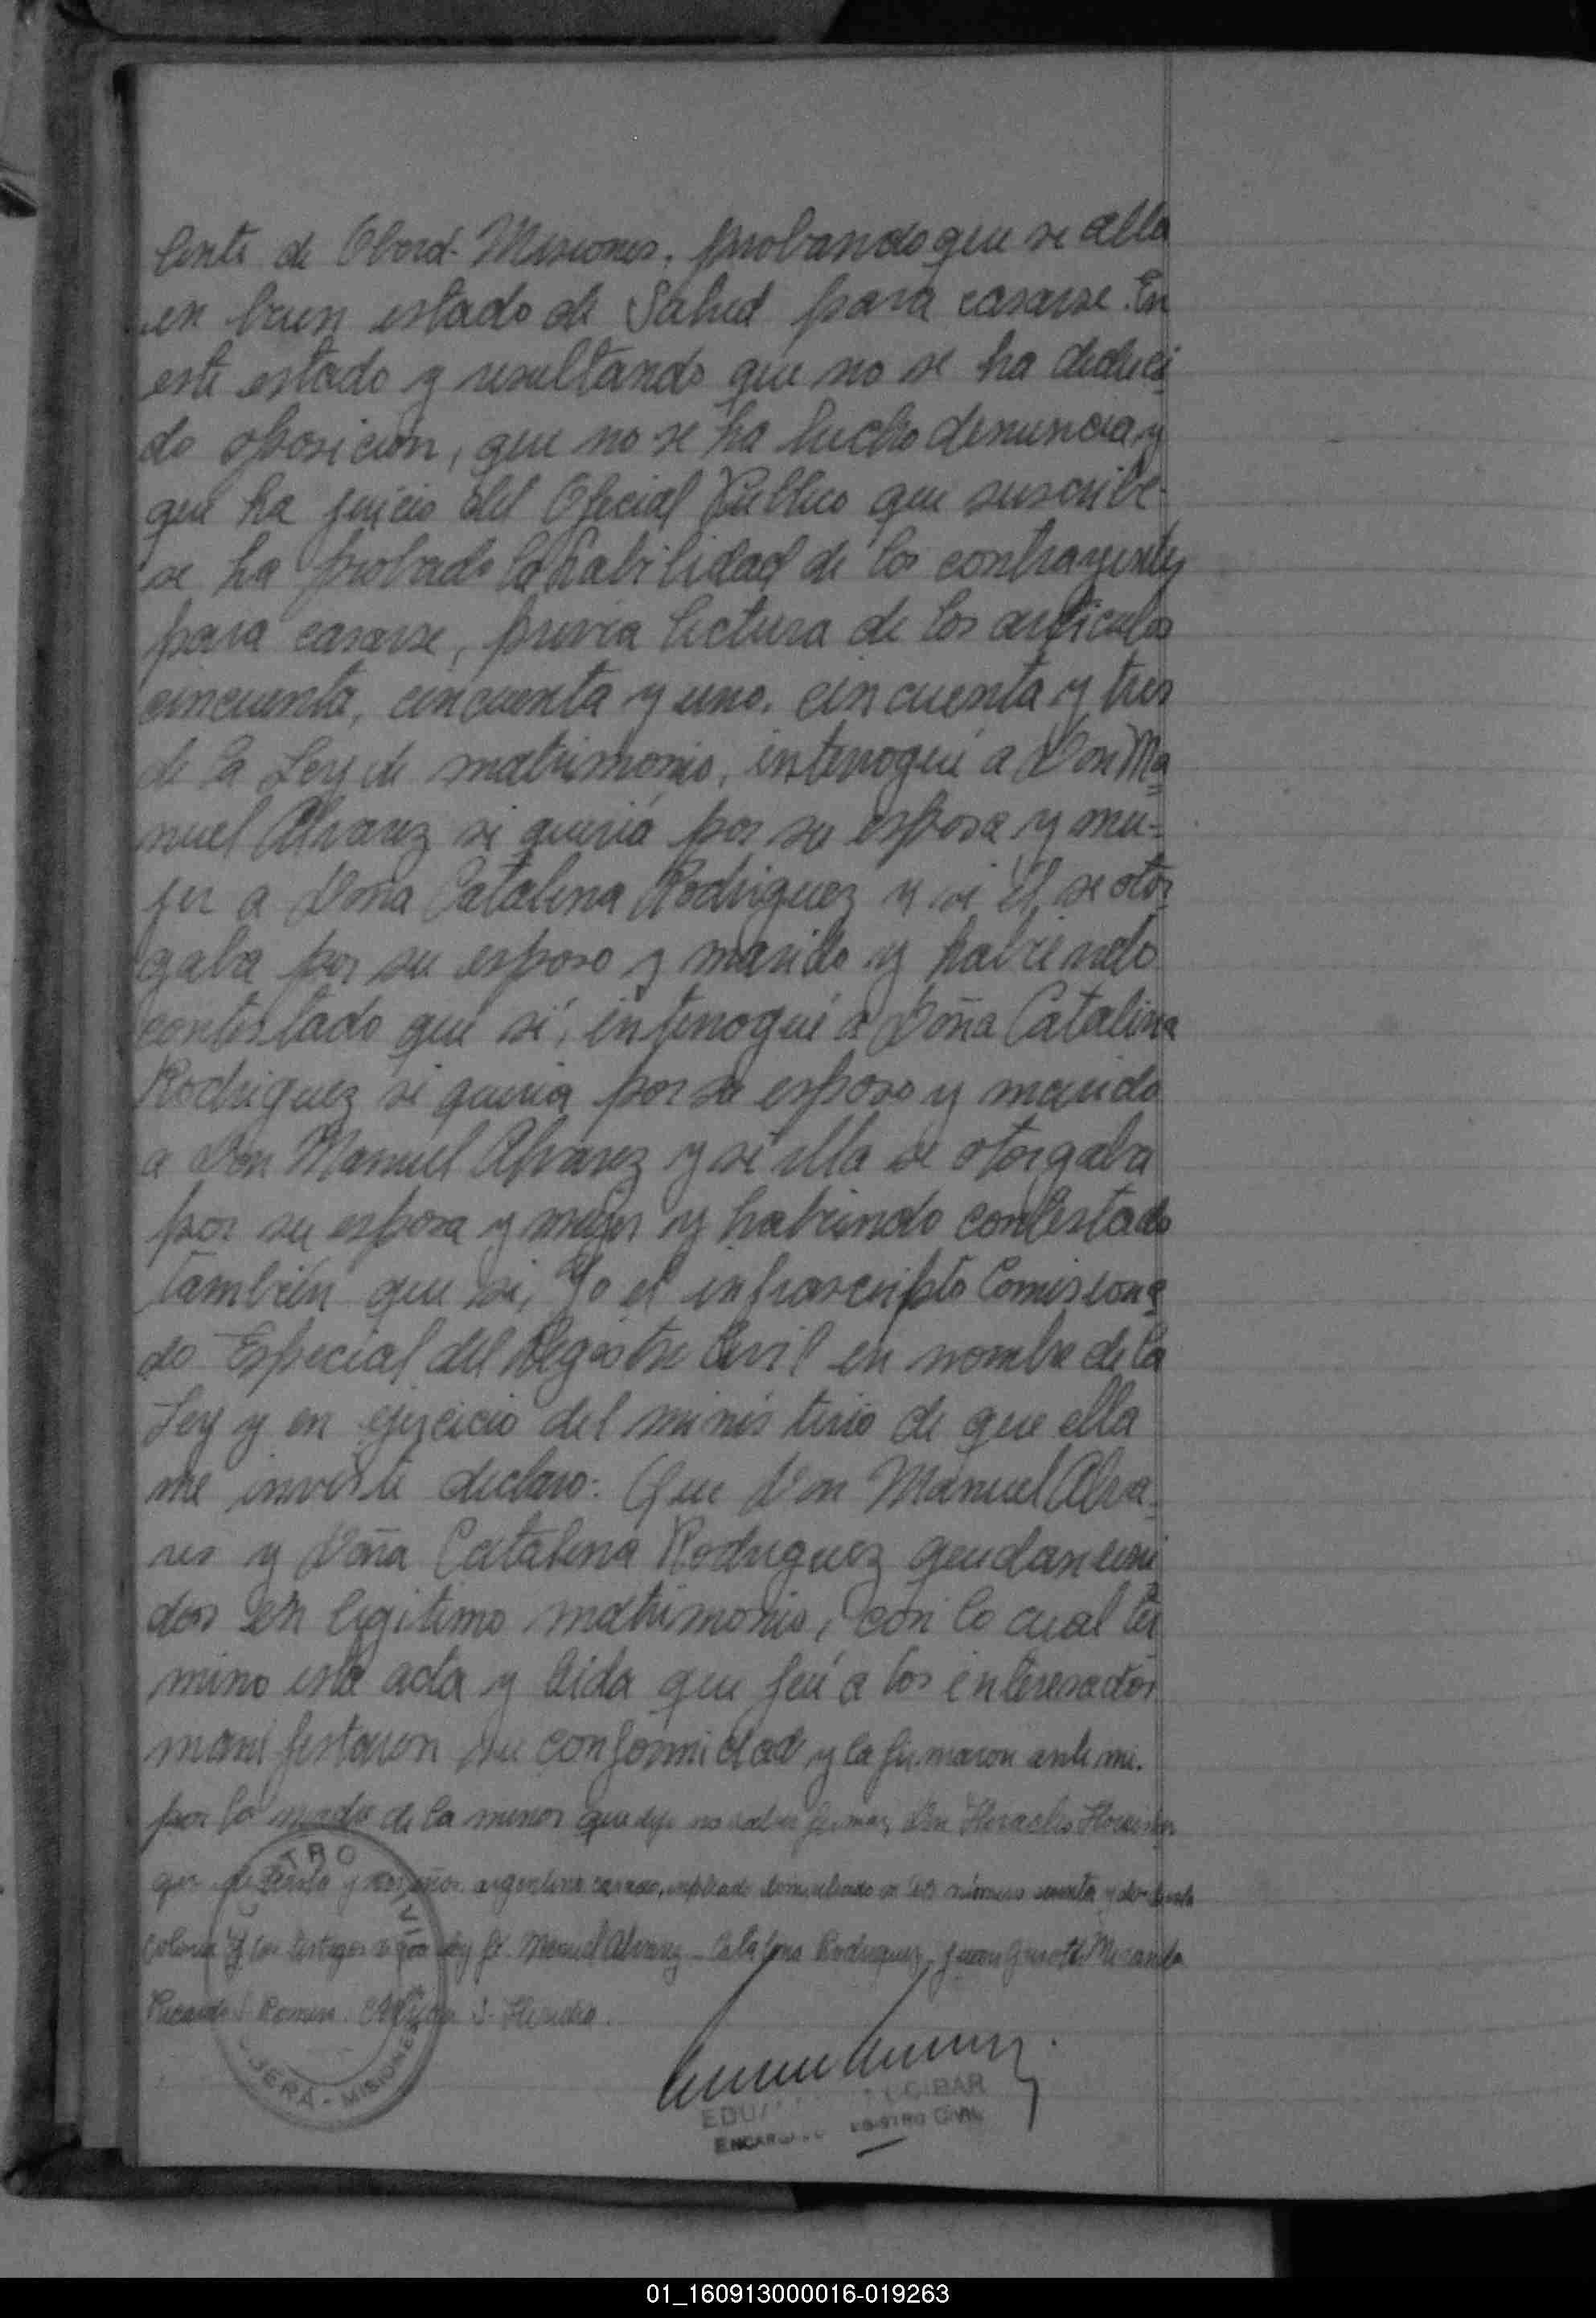 de Oberá. Misiones, probando que se alla
en buen estado de Salud para casarse. En
este estado y resultando que no se ha deduci
do oposicion, que no se ha hecho denuncia y
que ha juicio del Oficial Publico que suscribe
se ha probado la habilidad de los contrayentes
para casarse, previa lectura de los articulos
cincuenta, cincuenta y uno, cincuenta y tres
de la Ley de matrimonio, interrogué a Don Ma
nuel Alvarez si queria por su esposa y mu-
jer a Doña Catalina Rodriguez y si él se otor
gaba por su esposo y marido y habiendo
contestado que si, interrogué a Doña Catalina
Rodriguez si queria por su esposo y marido
a Don Manuel Alvarez y si ella se otorgaba
por su esposa y mujer y habiendo contestado
también que si, Yo el infrascripto Comisiona
do Especial del Registro Civil en nombre de la
Ley y en ejercicio del ministerio de que ella
me inviste declaro: Que Don Manuel Alva-
res y Doña Catalina Rodriguez quedan uni
dos en legitimo matrimonio, con lo cual ter
mino esta acta y leida que fué a los interesados
manifestaron su conformidad y la firmaron ante mi.
por la madre de la menor que dijo no saber firmar, Don
argentino casado, empleado domiciliado en
Colonia y los testigos Manuel Alvarez - Catalina Rodriguez,
Ricardo
TRO CIVIL
OBERÁ - MISIONES
EDU CIBAR
ENCARGADO REGISTRO CIVIL
01_160913000016-019263